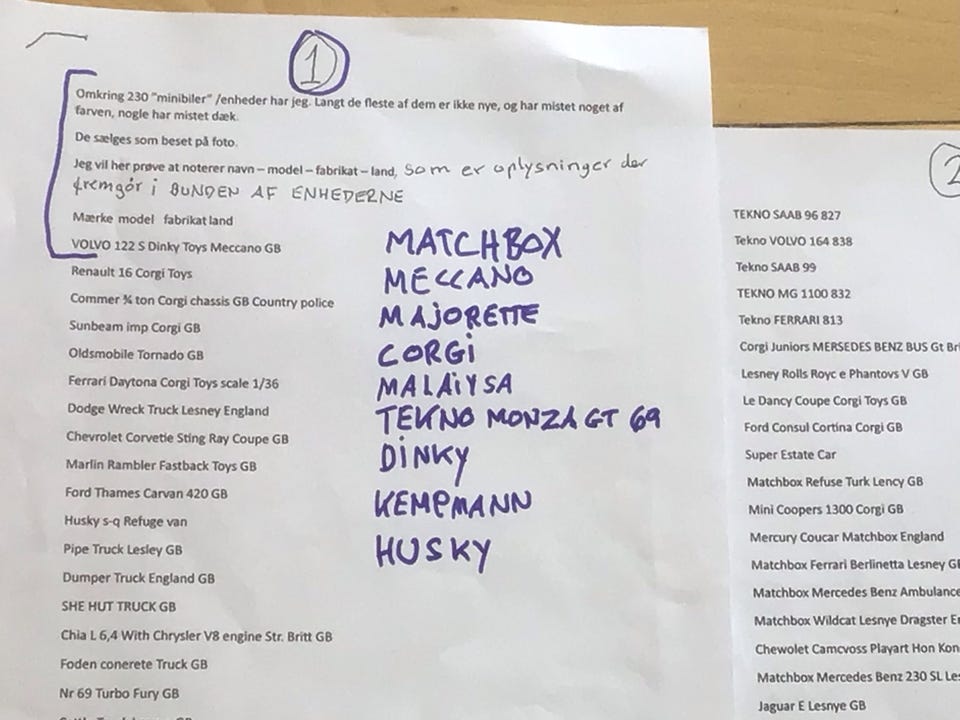 1
Omkring 230 "minibiler" /enheder har jeg. Langt de fleste af dem er ikke nye, og har mistet noget af
farven, nogle har mistet dæk.
De sælges som beset på foto.
Jeg vil her prøve at noterer navn – model – fabrikat – land, som er oplysninger der
fremgår i BUNDEN AF ENHEDERNE
Mærke model fabrikat land
VOLVO 122 S Dinky Toys Meccano GB
Renault 16 Corgi Toys
Commer ¾ ton Corgi chassis GB Country police
Sunbeam imp Corgi GB
Oldsmobile Tornado GB
Ferrari Daytona Corgi Toys scale 1/36
Dodge Wreck Truck Lesney England
Chevrolet Corvetie Sting Ray Coupe GB
Marlin Rambler Fastback Toys GB
Ford Thames Carvan 420 GB
Husky s-q Refuge van
Pipe Truck Lesley GB
Dumper Truck England GB
SHE HUT TRUCK GB
Chia L 6,4 With Chrysler V8 engine Str. Britt GB
Foden conerete Truck GB
Nr 69 Turbo Fury GB
MATCHBOX
MECCANO
MAJORETTE
CORGI
MALAIYSA
TEKNO MONZA GT 69
DINKY
KEMPMANN
HUSKY
2
TEKNO SAAB 96 827
Tekno VOLVO 164 838
Tekno SAAB 99
TEKNO MG 1100 832
Tekno FERRARI 813
Corgi Juniors MERSEDES BENZ BUS Gt Bri
Lesney Rolls Royc e Phantovs V GB
Le Dancy Coupe Corgi Toys GB
Ford Consul Cortina Corgi GB
Super Estate Car
Matchbox Refuse Turk Lency GB
Mini Coopers 1300 Corgi GB
Mercury Coucar Matchbox England
Matchbox Ferrari Berlinetta Lesney GB
Matchbox Mercedes Benz Ambulance
Matchbox Wildcat Lesnye Dragster En
Chewolet Camcvoss Playart Hon Kon
Matchbox Mercedes Benz 230 SL Les
Jaguar E Lesnye GB